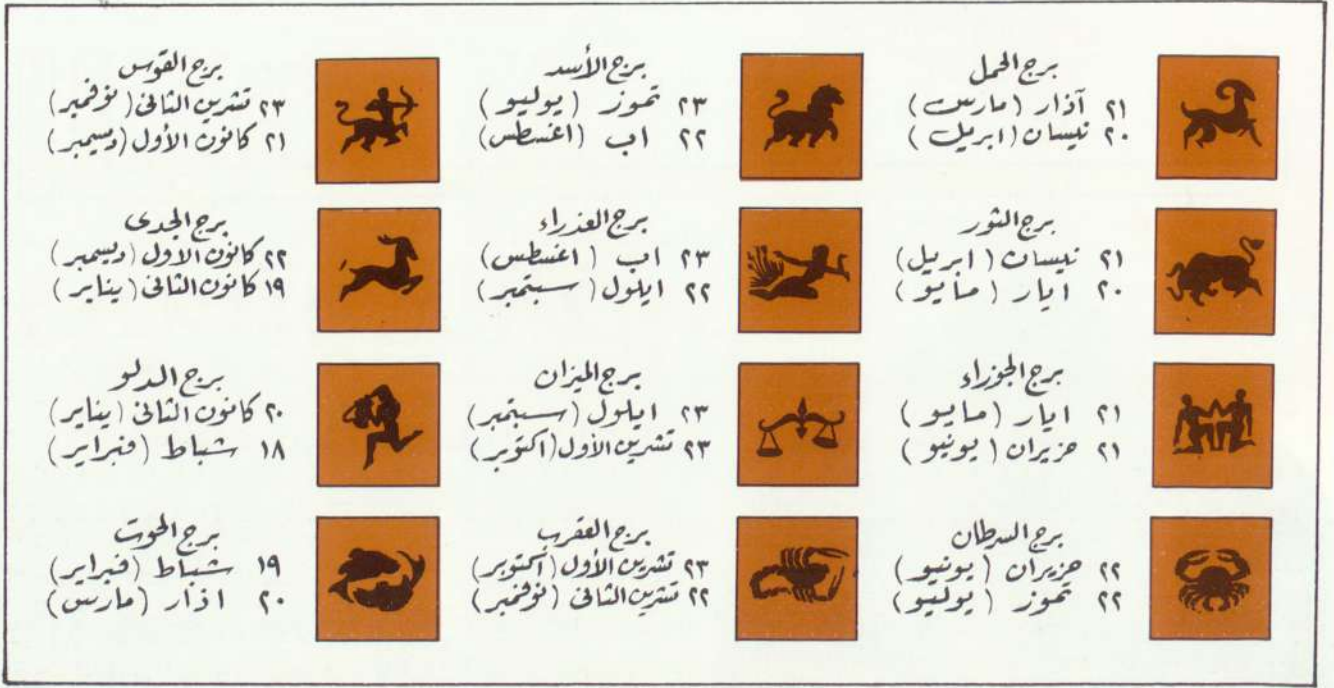 برج الحمل
٢١ آذار (مارس)
٢٠ نيسان (ابريل)
برج الثور
٢١ نيسان (ابريل)
٢٠ ايار (مايو)
برج الجوزاء
٢١ ايار (مايو)
٢١ حزيران (يونيو)
برج السرطان
٢٢ حزيران (يونيو)
٢٢ تموز (يوليو)
برج الأسد
٢٣ تموز (يوليو)
٢٢ اب (اغسطس)
برج العذراء
٢٣ اب (اغسطس)
٢٢ ايلول (سبتمبر)
برج الميزان
٢٣ ايلول (سبتمبر)
٢٣ تشرين الأول (اكتوبر)
برج العقرب
٢٣ تشرين الأول (اكتوبر)
٢٢ تشرين الثانى (نوفمبر)
برج القوس
٢٣ تشرين الثانى (نوفمبر)
٢١ كانون الأول (ديسمبر)
برج الجدى
٢٢ كانون الاول (ديسمبر)
١٩ كانون الثانى (يناير)
برج الدلو
٢٠ كانون الثانى (يناير)
١٨ شباط (فبراير)
برج الحوت
١٩ شباط (فبراير)
٢٠ اذار (مارس)